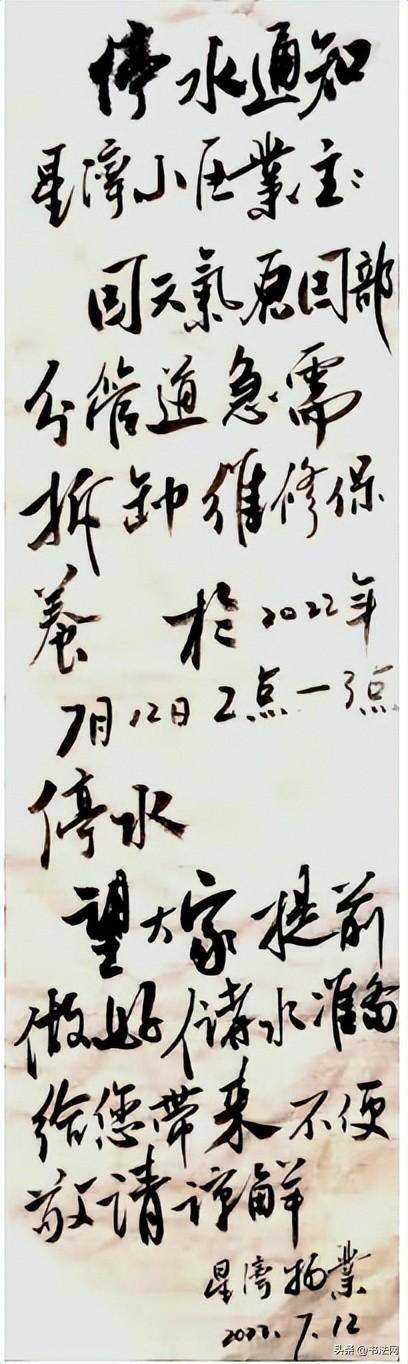 停水通知
星湾小区業主:
因天氣原因部
分管道急需
拆卸維修保
養 於2022年
7月12日2点一3点
停水
望大家提前
做好储水准备
给您带来不便
敬请谅解
星湾物業
2022.7.12
头条@书法网